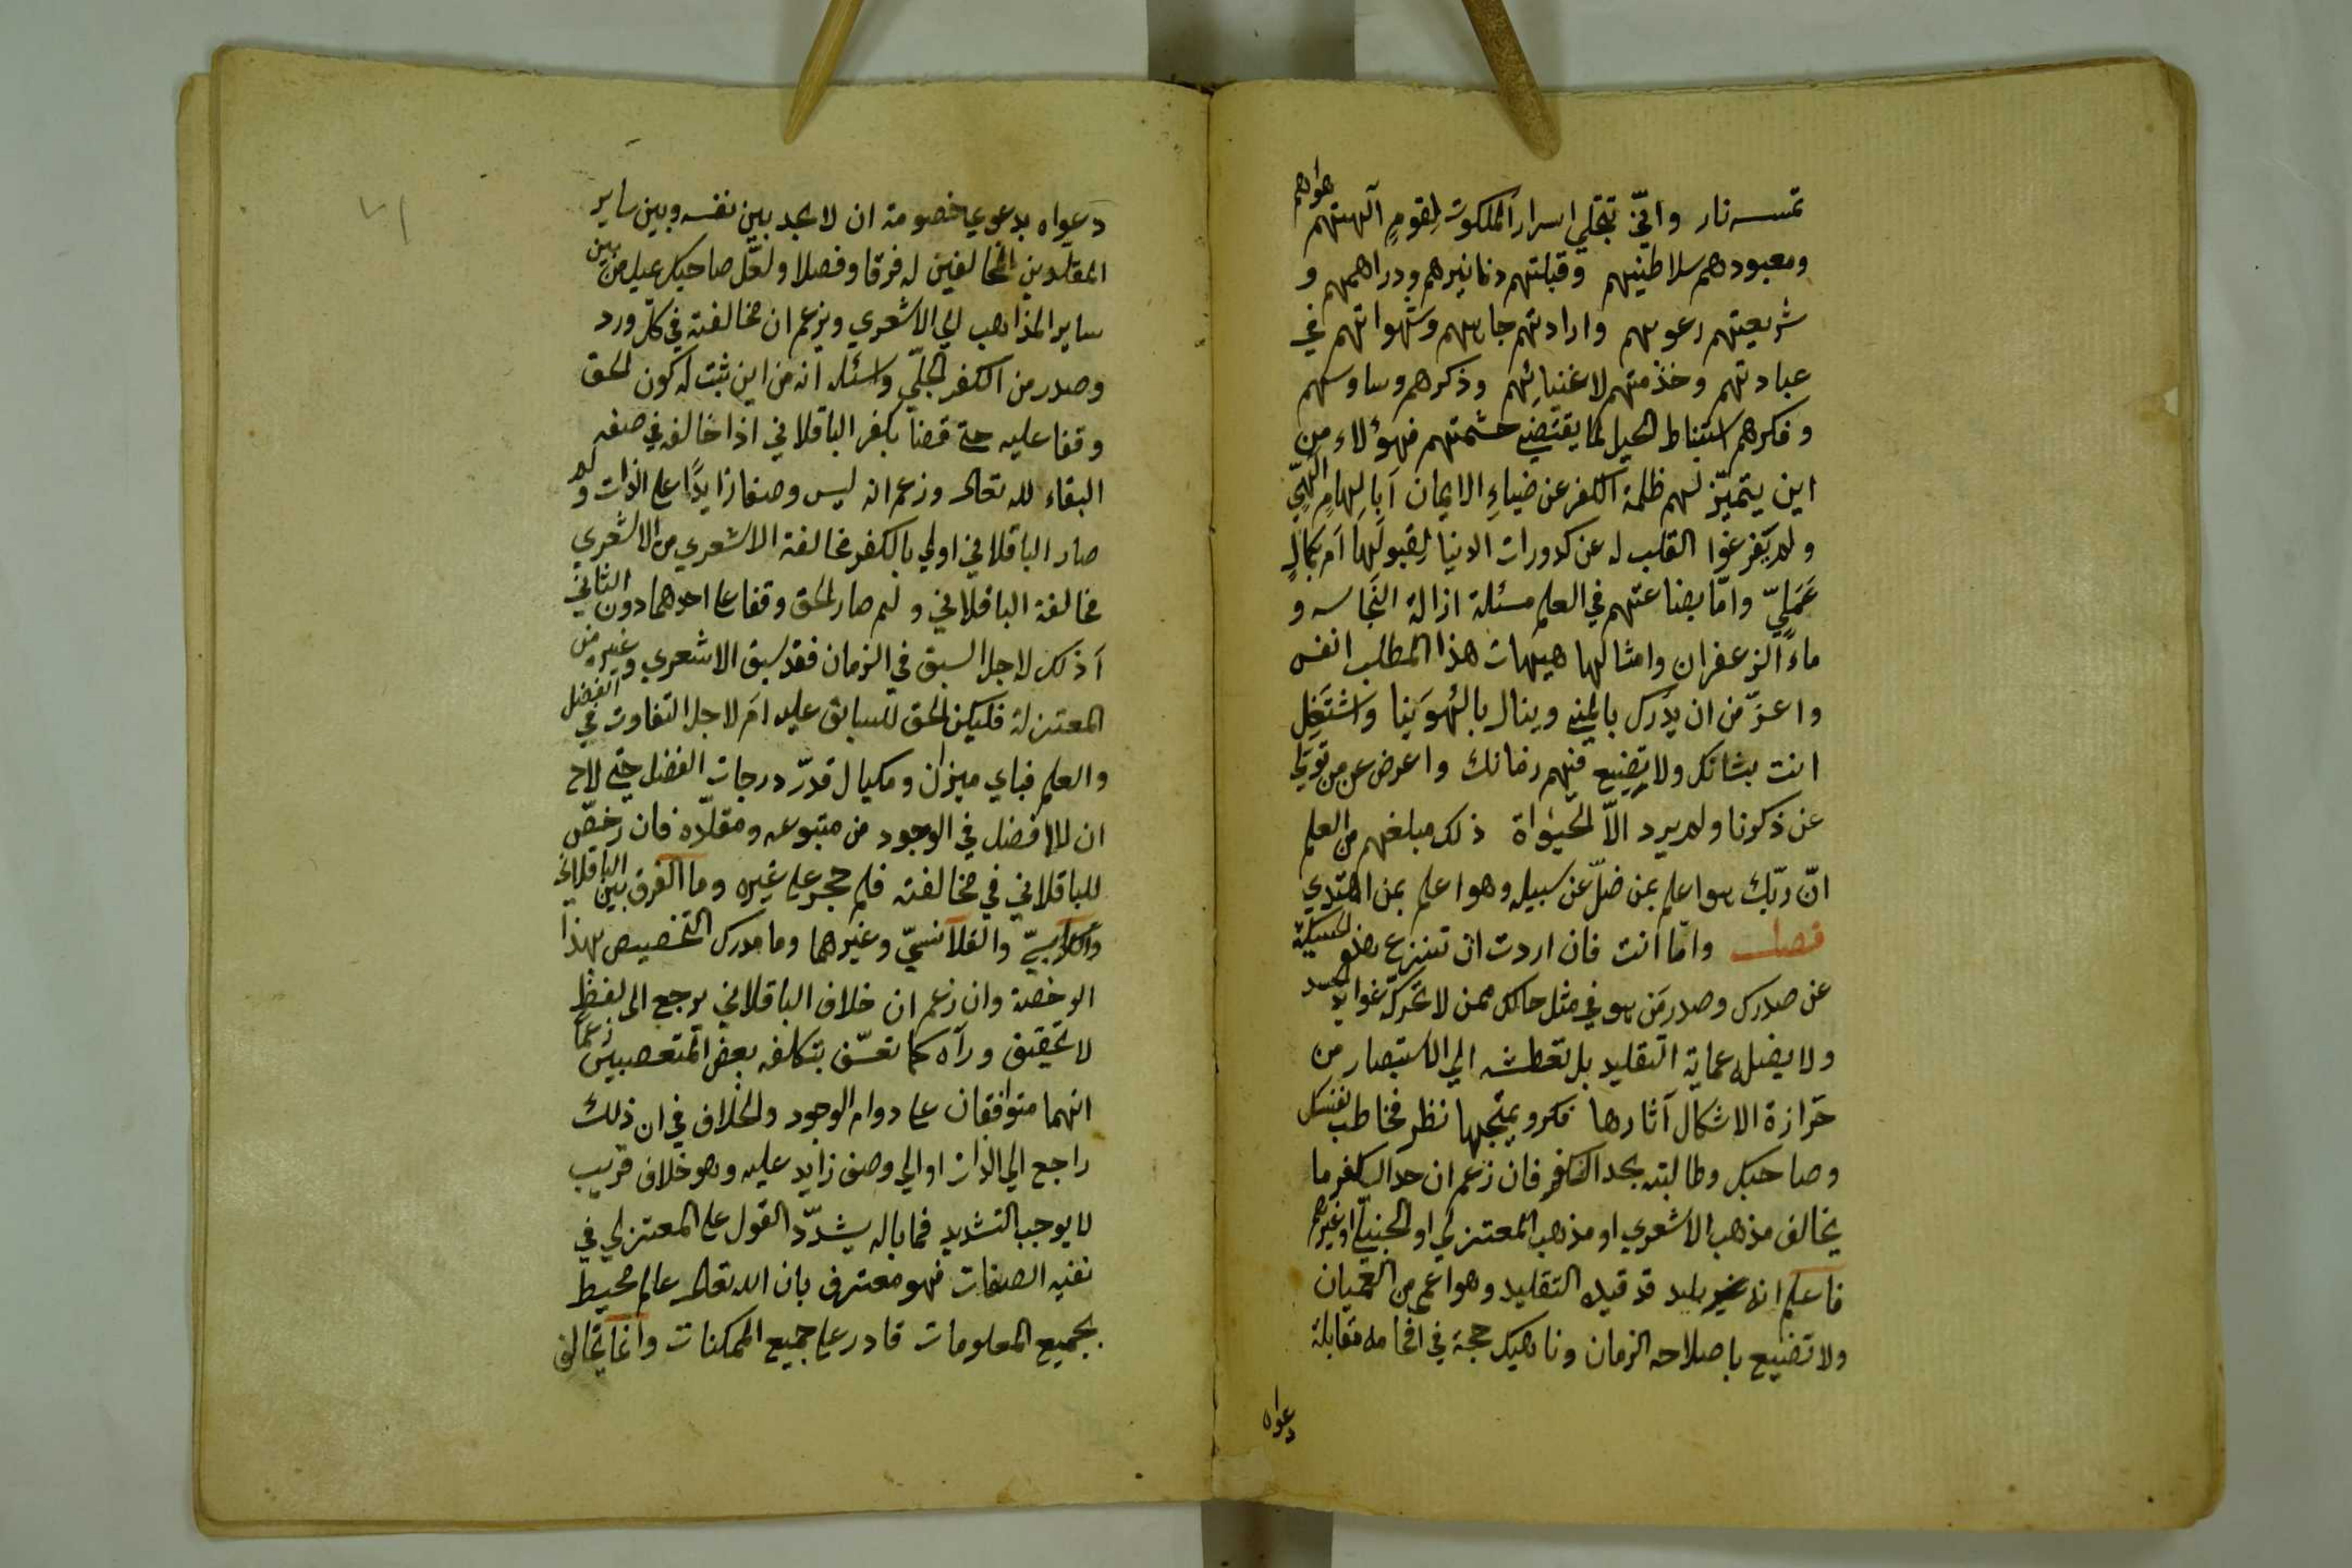 تمسسه نار وانّي تتجلي اسرار الملكوت لقومٍ آلهتهم هواهم
ومعبودهم سلاطينهم وقبلتهم دنانيرهم ودراهمهم و
شريعتهم رعونتهم وارادتهم جاههم وشهواتهم في
عبادتهم وخدمتهم لاغنيائهم وذكرهم وساوسهم
وفكرهم استنباط الحيل لما يقتضي حشمتهم فهؤلاء من
اين يتميّز لهم ظلمة الكفر عن ضياءِ الايمان آبالهامٍ الٰهيٍّ
ولم يفرغوا القلب له عن كدورات الدنيا لقبولها ام بكمالٍ
عَمَليّ وامّا بضاعتهم في العلم مسئلة ازالة النجاسه و
ماء الزعفران وامثالها هيهات هذا المطلب انفس
واعزّ من ان يدرك بالمني وينال بالهُوَينا واشتغِل
انت بشانك ولا تضيع فيهم زمانك واعرض عن من تولي
عن ذكرنا ولم يرد الاّ الحيٰوة ذلك مبلغهم من العلم
انّ ربّك هو اعلم بمن ضلّ عن سبيله وهو اعلم بمن اهتدي
فصل وامّا انت فان اردت ان تنزع هذه الحسيكة
عن صدرك وصدر من هو في مثل حالك ممن لا تحركه غواية الحسد
ولا يضله عماية التقليد بل تعطشه الي الاستبصار من
حزازة الاشكال آثارها فكر ويتجها نظر فخاطب نفسك
وصاحبك وطالبته بحد الكفر فان زعم ان حد الكفر ما
يخالف مذهب الاشعري او مذهب المعتزلي او الحنبلي او غيرهم
فاعلم انه غير بليد قد قيده التقليد وهو اعمي من العميان
ولا تضيع باصلاحه الزمان وناهيك حجة في افحامه مقابلة
دعواه
دعواه بدعوي خصومة ان لا يجد بين نفسه وبين ساير
المقلدين المخالفين له فرقا وفصلا ولعّل صاحبك يميل من بين
ساير المذاهب الي الاشعري ويزعم ان مخالفته في كلّ ورد
وصدر من الكفر الجلّي واسئله انه من اين ثبت له كون الحق
وقفا عليه حتي قضا بكفر الباقلاني اذا خالفه في صفه
البقاء لله تعالي وزعم انه ليس وصفا زايدًا علي الذات ولم
صار الباقلاني اولي بالكفر بمخالفة الاشعري من الاشعري
مخالفة الباقلاني ولم صار الحق وقفا علي احدهما دون الثاني
آذلك لاجل السبق في الزمان فقد سبق الاشعري وغيره من
المعتزلة فليكن الحق للسابق عليه ام لاجل التفاوت في الفضل
والعلم فباي ميزان ومكيال قدّر درجات الفضل حتي لاح
ان لا افضل في الوجود من متبوعه ومقلّده فان رخّص
للباقلاني في مخالفته فلم حجر علي غيره وما الفرق بين الباقلاني
والكرابيسيّ والقلانسيّ وغيرهما وما مدرك التخصيص بهذا
الرخصة وان زعم ان خلاف الباقلاني يرجع الي لفظٍ
لا تحقيق ورآه كما تعسّف بتكلفه بعض المتعصبين زعماً
انهما متوافقان علي دوام الوجود والخلاف في ان ذلك
راجع الي الذات او الي وصف زايد عليه وهو خلاف قريب
لا يوجب التشديد فما باله يشدّد القول علي المعتزلي في
نفيه الصفات فهو معترف بان الله تعالي عالم محيط
بجميع المعلومات قادر علي جميع الممكنات وانما يخالف